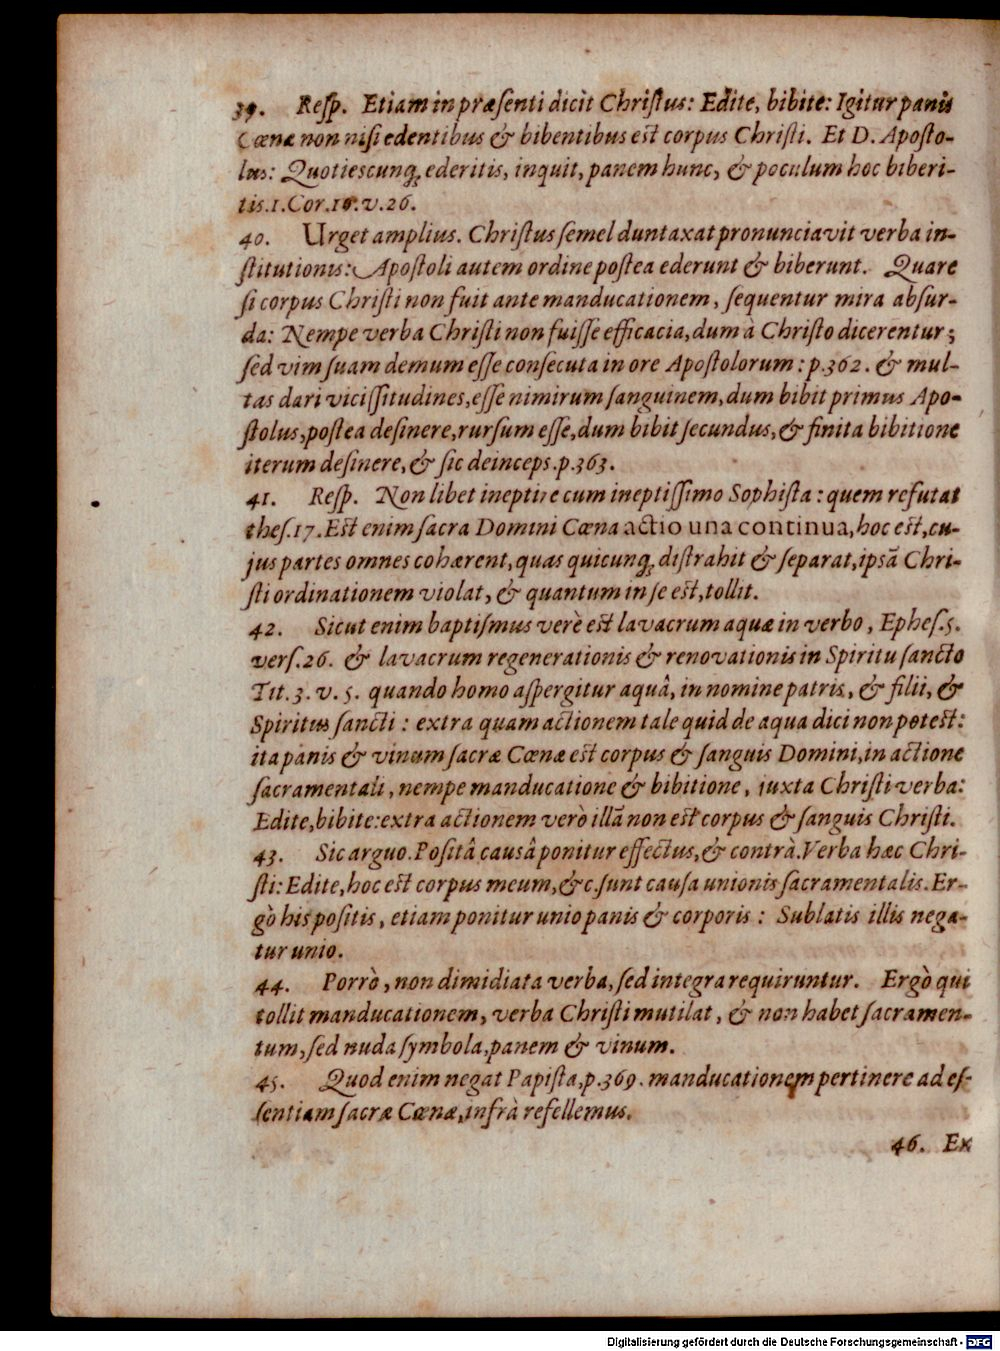 39. Reſp. Etiam in præſenti dicit Chriſtus: Edite, bibite: Igitur panis
Cœnæ non niſi edentibus & bibentibus eſt corpus Chriſti. Et D. Apoſto-
lus: Quotieſcunq; ederitis, inquit, panem hunc, & poculum hoc biberi-
tis. 1. Cor. v. 26.
40. Urget amplius. Chriſtus ſemel duntaxat pronunciavit verba in-
ſtitutionis: Apoſtoli autem ordine poſtea ederunt & biberunt. Quare
ſi corpus Chriſti non fuit ante manducationem, ſequentur mira abſur-
da: Nempe verba Chriſti non fuiſſe efficacia, dum à Chriſto dicerentur;
ſed vim ſuam demum eſſe conſecuta in ore Apoſtolorum: p. 362. & mul-
tas dari viciſſitudines, eſſe nimirum ſanguinem, dum bibit primus Apo-
ſtolus, poſtea deſinere, rurſum eſſe, dum bibit ſecundus, & finita bibitione
iterum deſinere, & ſic deinceps. p. 363.
41. Reſp. Non libet ineptire cum ineptiſſimo Sophiſta: quem refutat
theſ. 17. Eſt enim ſacra Domini Cœna actio una continua, hoc eſt, cu-
jus partes omnes cohærent, quas quicunq; diſtrahit & ſeparat, ipsã Chri-
ſti ordinationem violat, & quantum in ſe eſt, tollit.
42. Sicut enim baptiſmus verè eſt lavacrum aquæ in verbo, Epheſ. 5.
verſ. 26. & lavacrum regenerationis & renovationis in Spiritu ſancto
Tit. 3. v. 5. quando homo aſpergitur aquâ, in nomine patris, & filii, &
Spiritus ſancti: extra quam actionem tale quid de aqua dici non poteſt:
ita panis & vinum ſacræ Cœnæ eſt corpus & ſanguis Domini, in actione
ſacramentali, nempe manducatione & bibitione, juxta Chriſti verba:
Edite, bibite: extra actionem verò illã non eſt corpus & ſanguis Chriſti.
43. Sic arguo. Poſitâ causâ ponitur effectus, & contrà. Verba hæc Chri-
ſti: Edite, hoc eſt corpus meum, &c. ſunt cauſa unionis ſacramentalis. Er-
gò his poſitis, etiam ponitur unio panis & corporis: Sublatis illis nega-
tur unio.
44. Porrò, non dimidiata verba, ſed integra requiruntur. Ergò qui
tollit manducationem, verba Chriſti mutilat, & non habet ſacramen-
tum, ſed nuda ſymbola, panem & vinum.
45. Quod enim negat Papiſta, p. 369. manducationem pertinere ad eſ-
ſentiam ſacræ Cœnæ, infrà refellemus.
46. Ex
Digitalisierung gefördert durch die Deutsche Forschungsgemeinschaft - DFG